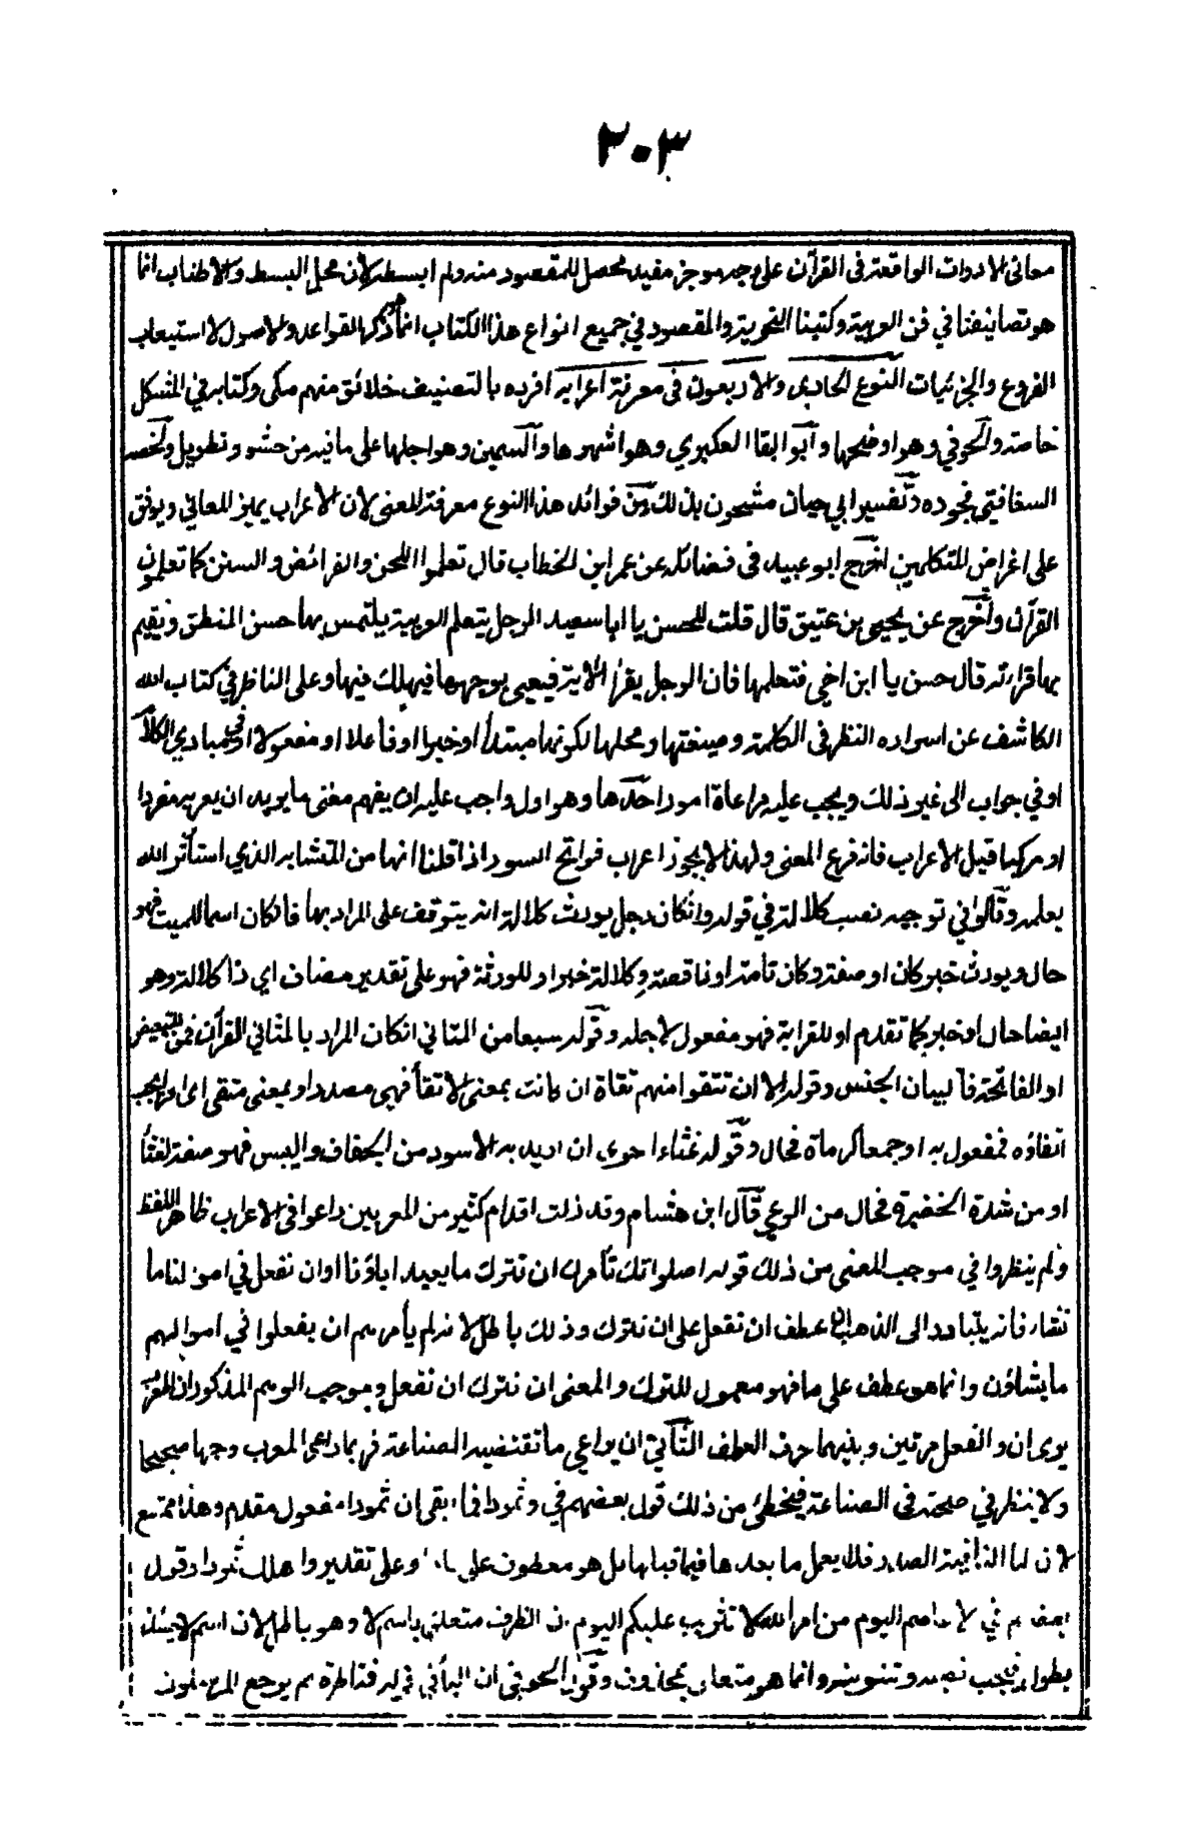 ٣٠٣
معاني الادوات الواقعة في القرآن على وجه موجز مفيد محصل للمقصود منه ولم ابسطه لان محل البسط والاطناب انما
هو تصانيفنا في فن العربية وكتبنا النحوية والمقصود في جميع انواع هذا الكتاب انما ذكر القواعد والاصول لا استيعاب
الفروع والجزئيات النوع الحادي والاربعون في معرفة اعرابه افرده بالتصنيف خلائق منهم مكي وكتابه في المشكل
خاصة والحوفي وهو اوضحها وابو البقا العكبري وهو اشهرها والسمين وهو اجلها على ما فيه من حشو وتطويل ولخصه
السفاقسي فجوده وتفسير ابي حيان مشحون بذلك ومن فوائد هذا النوع معرفة المعنى لان الاعراب يميز المعاني ويوقف
على اغراض المتكلمين اخرج ابو عبيد في فضائله عن عمر ابن الخطاب قال تعلموا اللحن والفرائض والسنن كما تعلمون
القرآن واخرج عن يحيى بن عتيق قال قلت للحسن يا ابا سعيد الرجل يتعلم العربية يلتمس بها حسن المنطق ويقيم
بها قراءته قال حسن يا ابن اخي فتعلمها فان الرجل يقرأ الآية فيعيى بوجهها فيهلك فيها وعلى الناظر في كتاب الله
الكاشف عن اسراره النظر في الكلمة وصيغتها ومحلها لكونها مبتدأ او خبرا او فاعلا او مفعولا او في مبادي الكلام
او في جواب الى غير ذلك ويجب عليه مراعاة امور احدها وهو اول واجب عليه ان يفهم معنى ما يريد ان يعربه مفردا
او مركبا قبل الاعراب فانه فرع المعنى ولهذا لا يجوز اعراب فواتح السور اذا قلنا انها من المتشابه الذي استأثر الله
بعلمه وقالوا في توجيه نصب كلالة في قوله وان كان رجل يورث كلالة انه يتوقف على المراد بها فان كان اسما للميت فهو
حال ويورث خبر كان او صفة وكان تامة او ناقصة وكلالة خبر او للورثة فهو على تقدير مضاف اي ذا كلالة وهو
ايضا حال او خبر كما تقدم او للقرابة فهو مفعول لاجله وقوله سبعا من المثاني ان كان المراد بالمثاني القرآن فمن للتبعيض
او الفاتحة فلبيان الجنس وقوله الا ان تتقوا منهم تقاة ان كانت بمعنى الاتقاء فهي مصدر او بمعنى متقى اي امرا يجب
اتقاؤه فمفعول به او جمعا كرماة فحال وقوله غثاء احوى ان اريد به الاسود من الجفاف واليبس فهو صفة لغثاء
او من شدة الخضرة فحال من المرعى قال ابن هشام وقد زلت اقدام كثير من المعربين راعوا في الاعراب ظاهر اللفظ
ولم ينظروا في موجب المعنى من ذلك قوله اصلواتك تأمرك ان نترك ما يعبد اباؤنا او ان نفعل في اموالنا ما
نشاء فانه يتبادر الى الذهن عطف ان نفعل على ان نترك وذلك باطل لانه لم يأمرهم ان يفعلوا في اموالهم
ما يشاؤن وانما هو عطف على ما فهو معمول للترك والمعنى ان نترك ان نفعل وموجب الوهم المذكور ان المعرب
يرى ان والفعل مرتين وبينهما حرف العطف الثاني ان يراعي ما تقتضيه الصناعة فربما راعى المعرب وجها صحيحا
ولا ينظر في صحته في الصناعة فيخطئ من ذلك قول بعضهم في وثمودا فما ابقى ان ثمودا مفعول مقدم وهذا ممتنع
لان لما النافية الصدر فلا يعمل ما بعدها فيما قبلها بل هو معطوف على عادا وعلى تقدير واهلك ثمودا وقول
بعضهم في لا عاصم اليوم من امر الله لا تثريب عليكم اليوم ان الظرف متعلق باسم لا وهو باطل لان اسم لا حينئذ
مطول فيجب نصبه وتنوينه وانما هو متعلق بمحذوف وقول الحوفي ان البأ في قوله فناظرة بم يرجع المرسلون